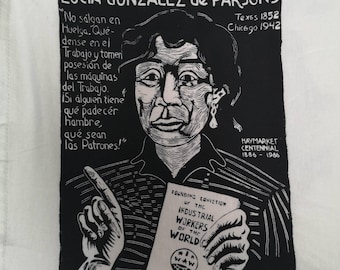 LUCIA GONZALEZ de PARSONS
Texas 1852
Chicago 1942
"No salgan en
Huelga. Qué-
dense en el
Trabajo y tomen
posesión de
las máquinas
del Trabajo.
¡Si alguien tiene
qué padecér
hambre,
qué sean
las Patrones!"
HAYMARKET
CENTENNIAL
1886 - 1986
FOUNDING CONVENTION
OF THE
INDUSTRIAL
WORKERS
OF THE
WORLD
IWW